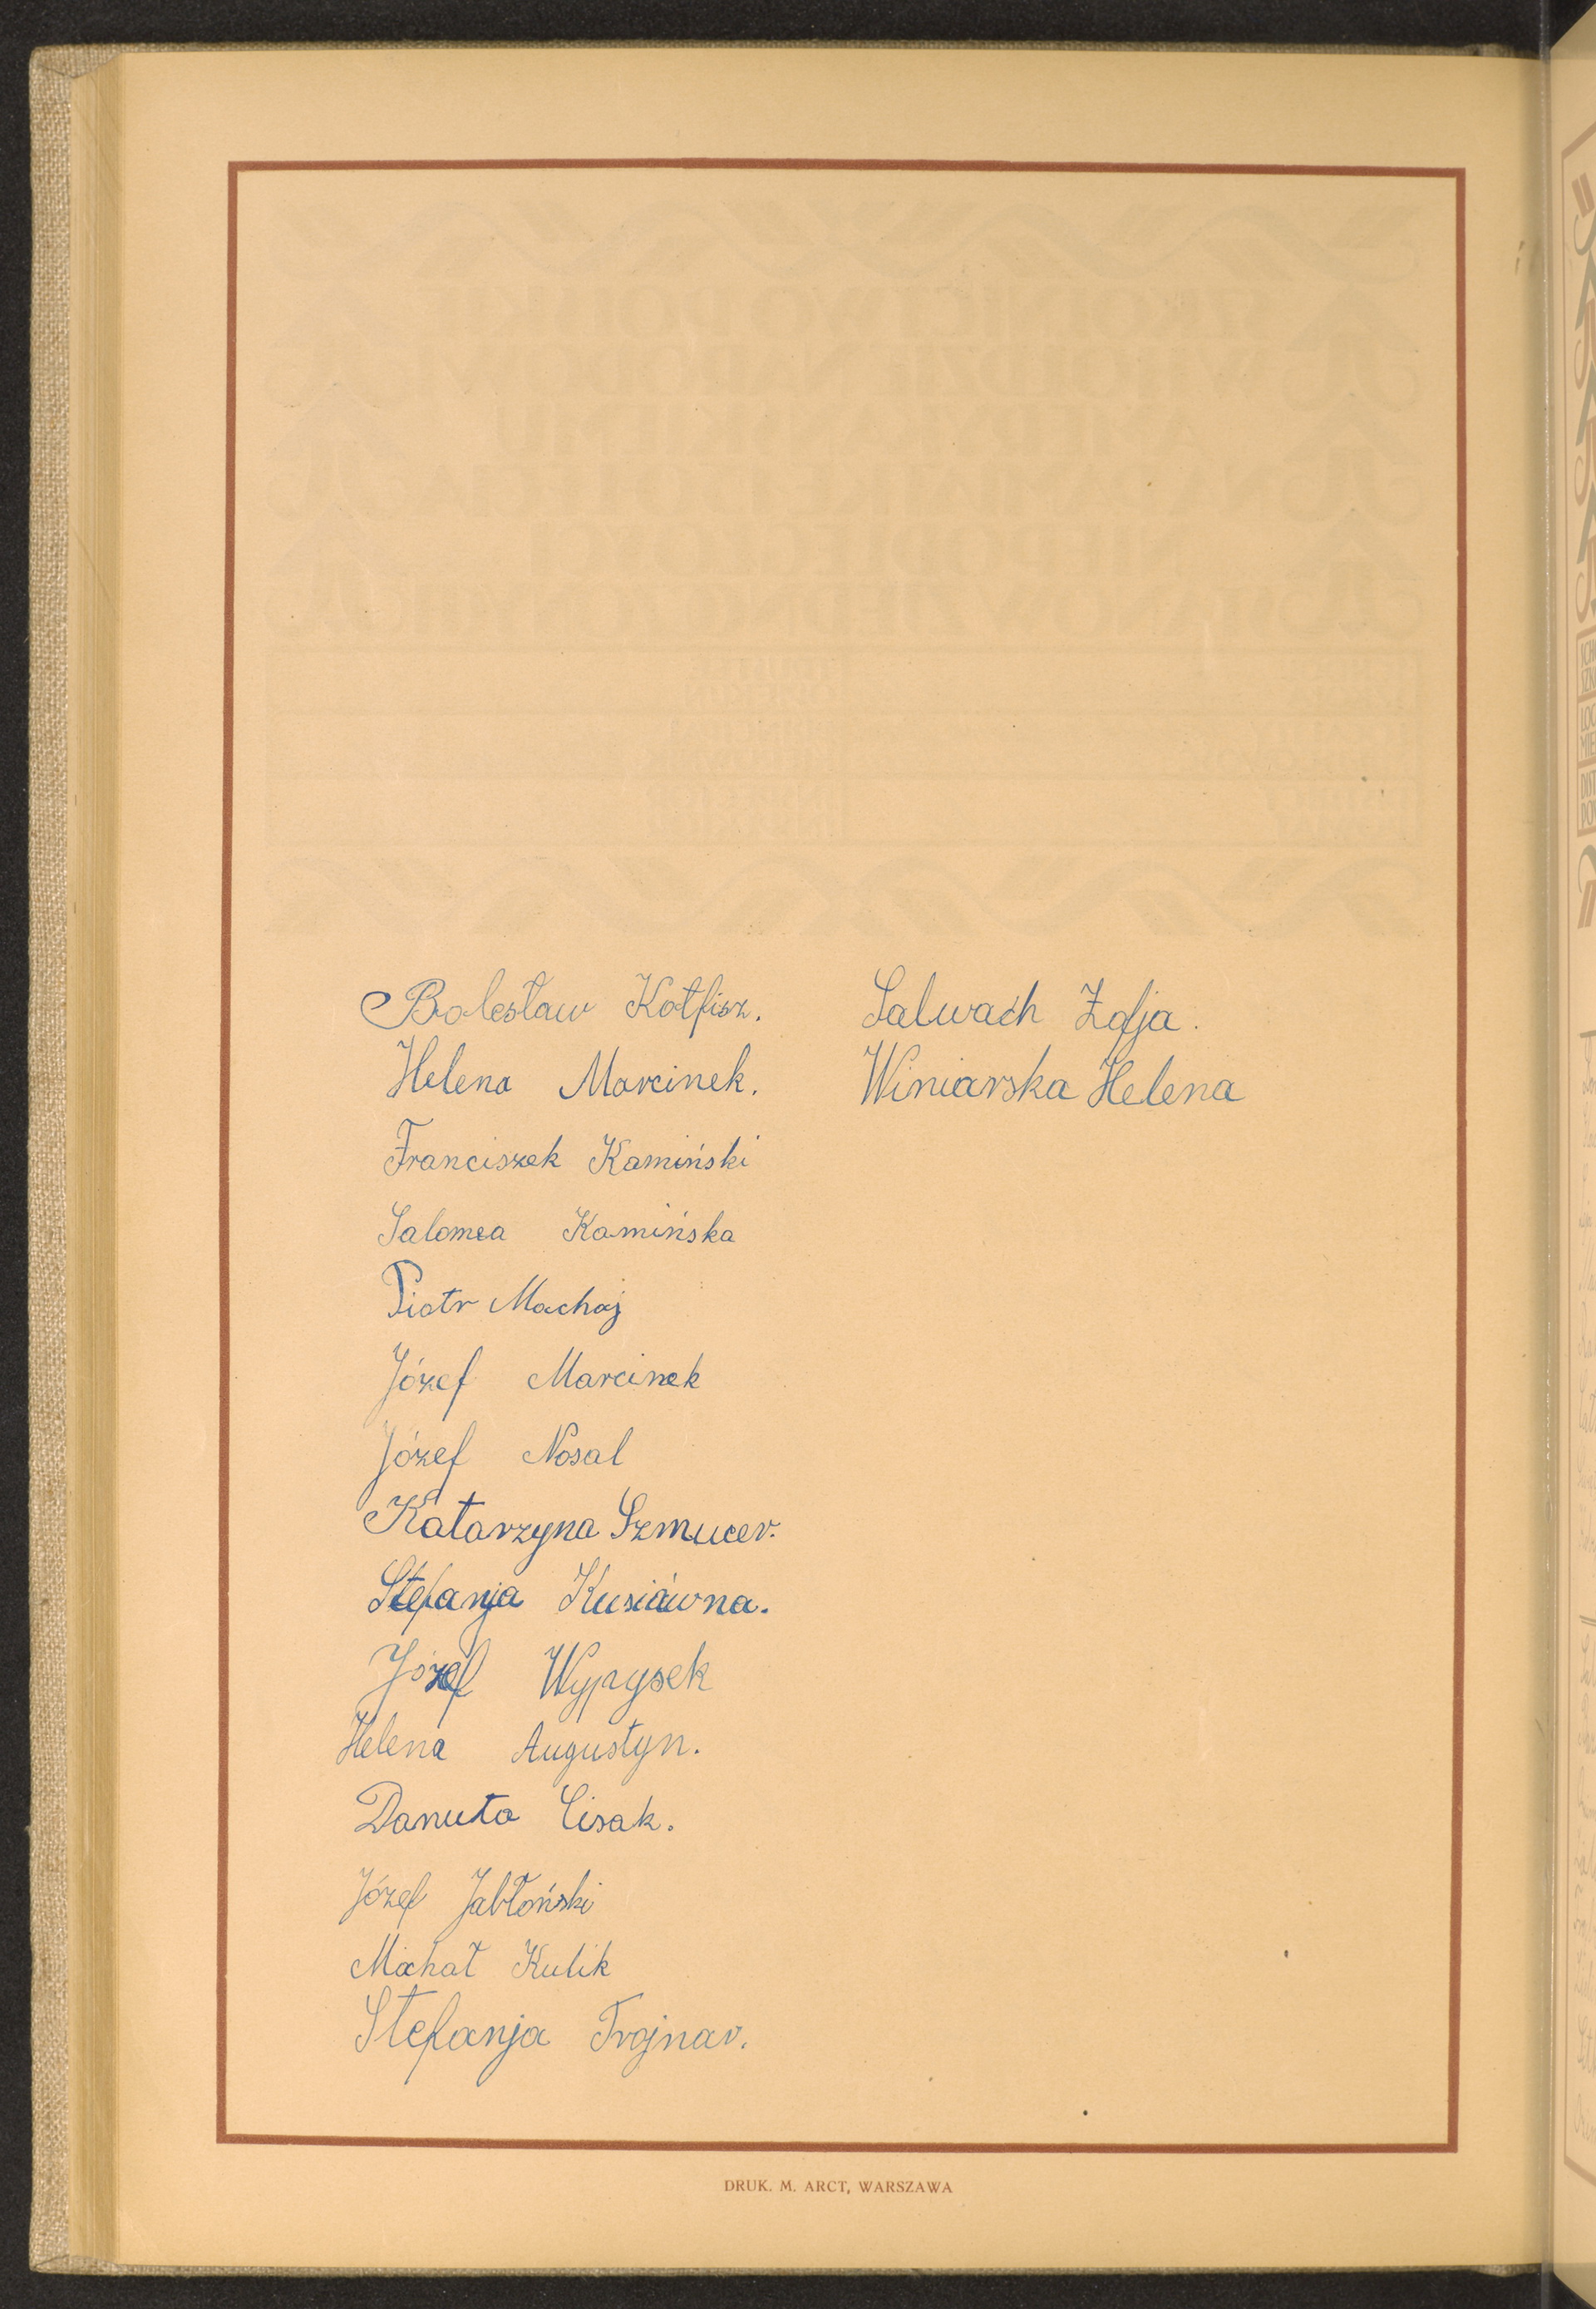 Bolesław Kotfisz.
Helena Marcinek.
Franciszek Kamiński
Salomea Kamińska
Piotr Machaj
Józef Marcinek
Józef Nosal
Katarzyna Szmucer.
Stefanja Kusiáwna.
Józef Wyprysek
Helena Augustyn.
Danuta Cisak.
Józef Jabłoński
Michał Kulik
Stefanja Trojnar.
Salwach Zofja.
Winiarska Helena
DRUK. M. ARCT, WARSZAWA